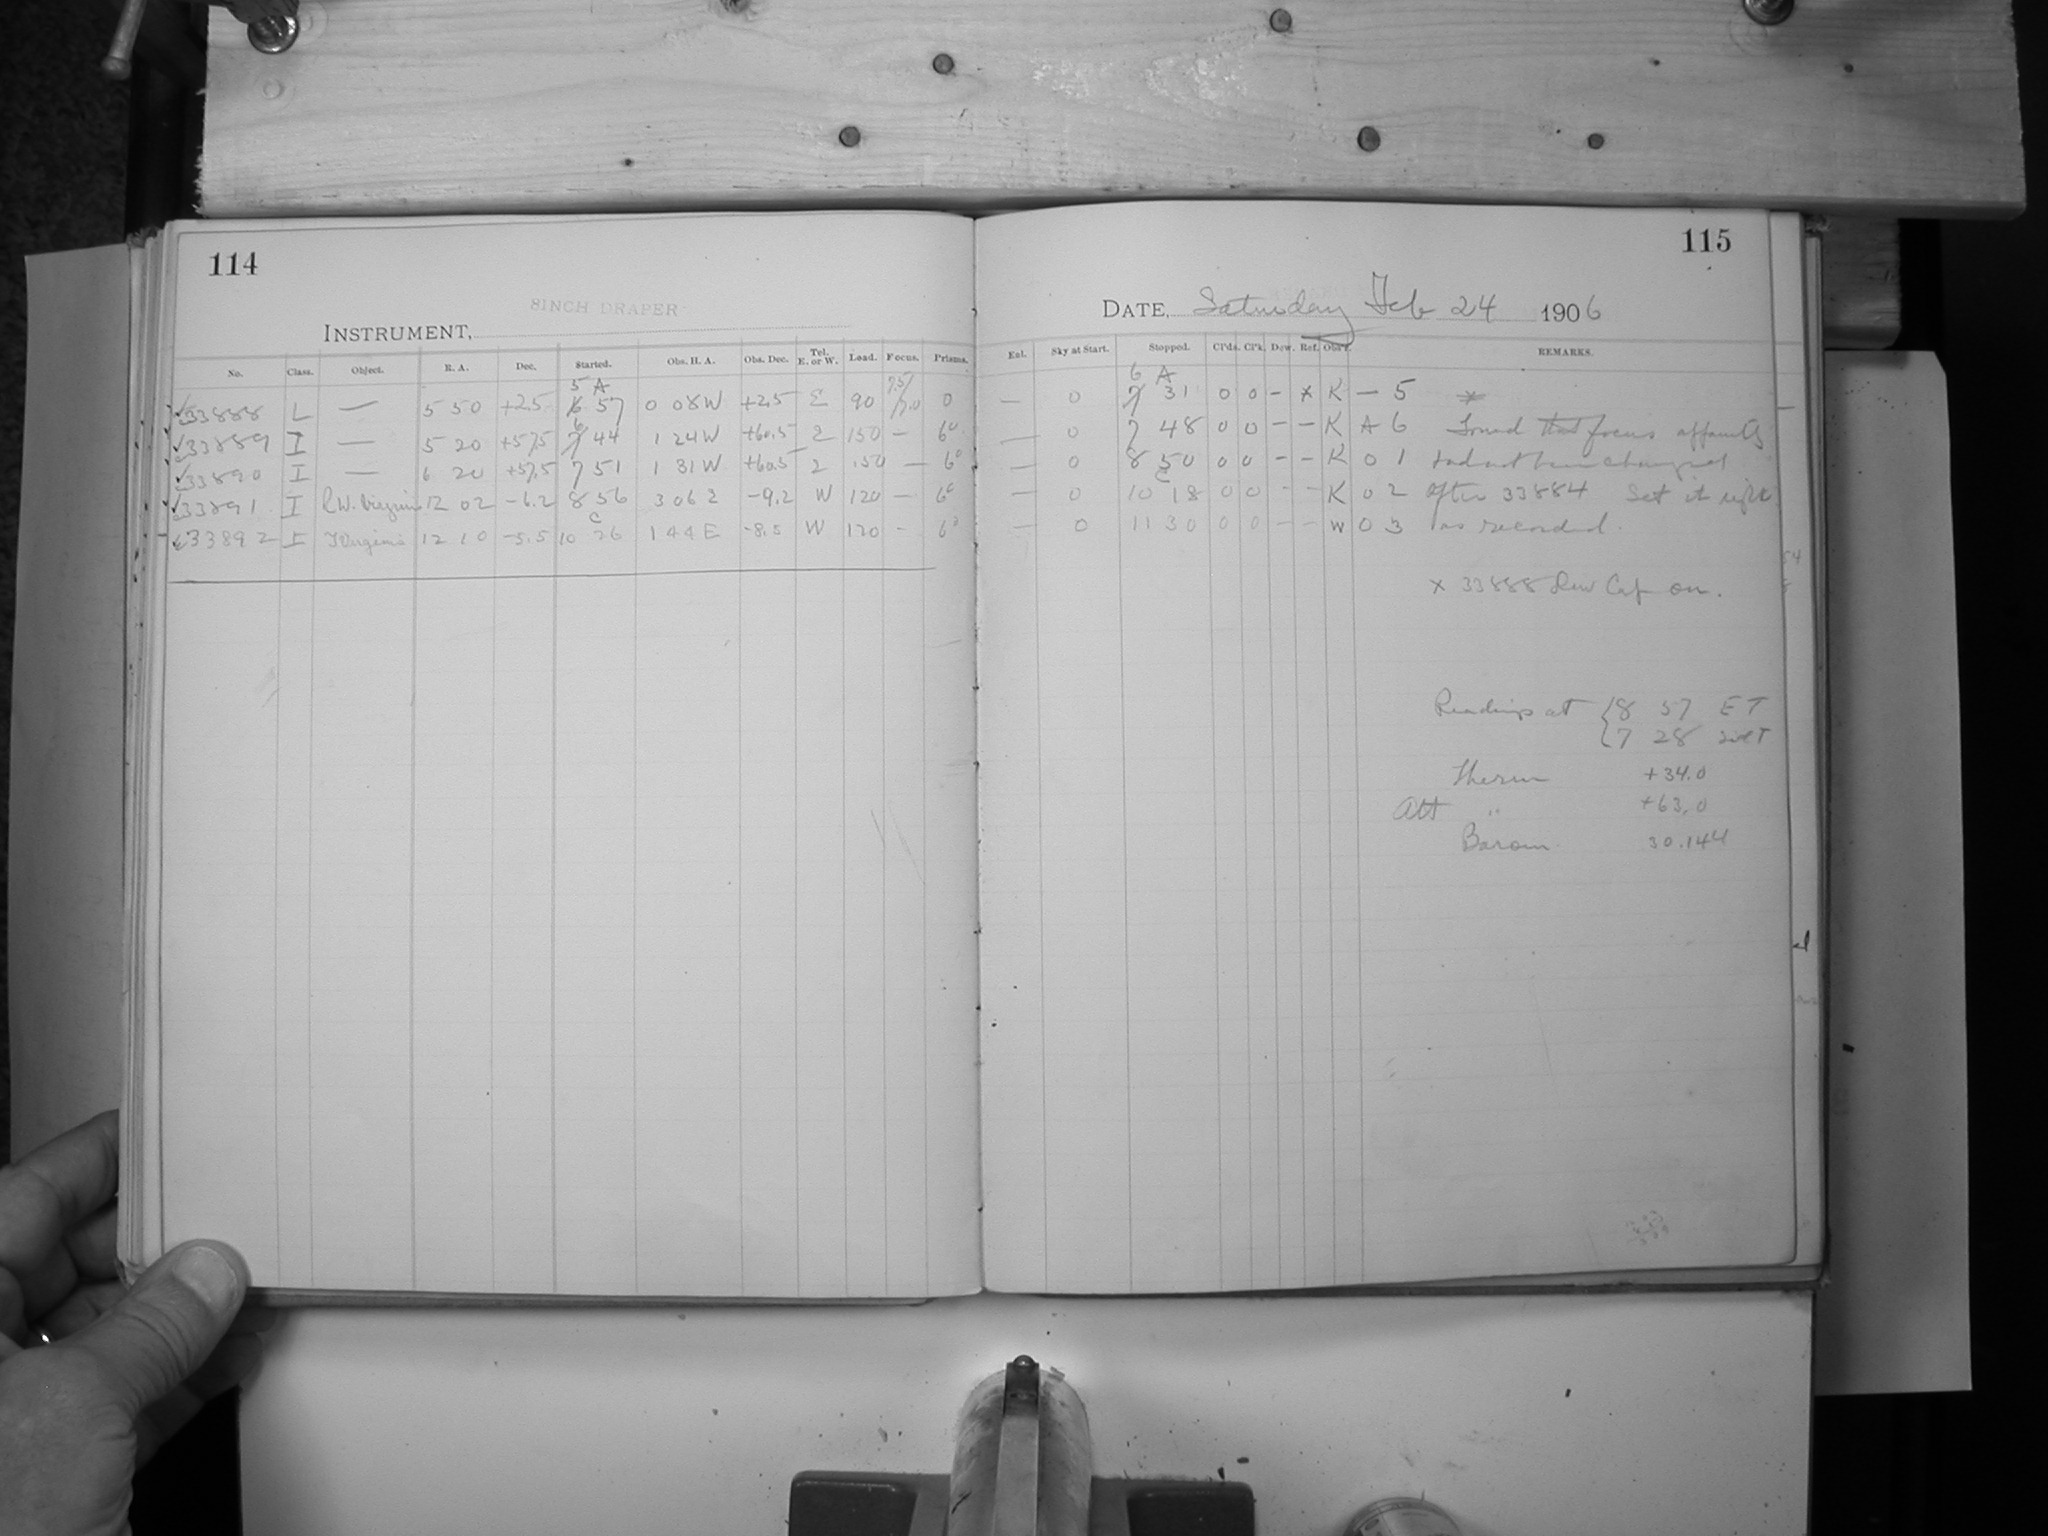 114
8INCH DRAPER
INSTRUMENT,
No. Class. Object. R. A. Dec. Started. Obs. H. A. Obs. Dec. Tel. E. or W. Load. Focus. Prisms.
5 A
33888 L — 5 50 +2.5 6 57 0 08 W +2.5 E 90 7.5/7.0 0
6
33889 I — 5 20 +57.5 7 44 1 24 W +60.5 E 150 — 6°
33890 I — 6 20 +57.5 7 51 1 31 W +60.5 E 150 — 6°
33891 I R.W. Virginis 12 02 -6.2 8 56 3 06 E -9.2 W 120 — 6°
C
33892 I Virginis 12 10 -5.5 10 26 1 44 E -8.5 W 120 - 6°
115
DATE, Saturday Feb 24 1906
Ent. Sky at Start. Stopped. Cl'ds. Cl'k. Dew. Ref. Obs'r. REMARKS.
6 A
— 0 7 31 0 0 - x K — 5 x
— 0 7 48 0 0 - - K A 6 Found that focus apparently
— 0 8 50 0 0 - - K 0 1 had not been changed
C
— 0 10 18 0 0 - - K 0 2 after 33884 Set it right
— 0 11 30 0 0 - - W 0 3 as recorded.
x 33888 Dew Cap on.
Readings at 18 57 ET
7 28
Therm +34.0
Att " +63.0
Barom 30.144